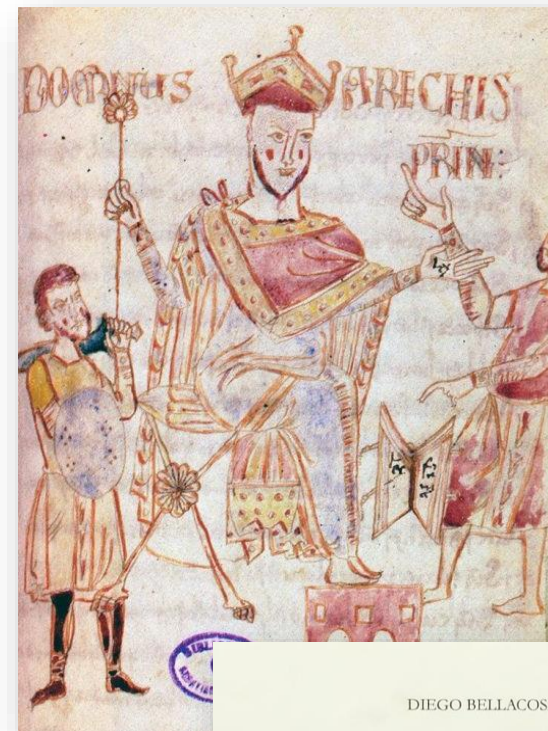 DOMNUS ARECHIS
PRIN:
DIEGO BELLACOS